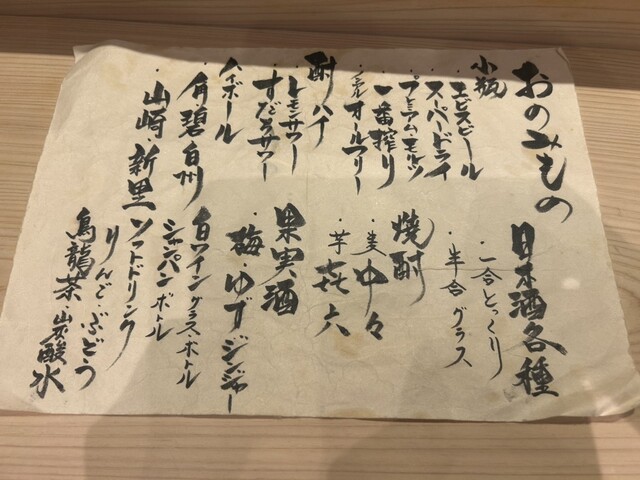 おのみもの
小瓶
・エビスビール
・スーパードライ
・プレミアム・モルツ
・一番搾り
・ノンアル オールフリー
酎ハイ
・レモンサワー
・すだちサワー
ハイボール
・角 碧 白州
・山崎・新里
日本酒各種
・一合とっくり
・半合グラス
焼酎
・麦 中々
・芋 㐂六
果実酒
・梅 ゆず ジンジャー
白ワイン グラス・ボトル
シャンパン ボトル
ソフトドリンク
りんご・ぶどう
烏龍茶・炭酸水